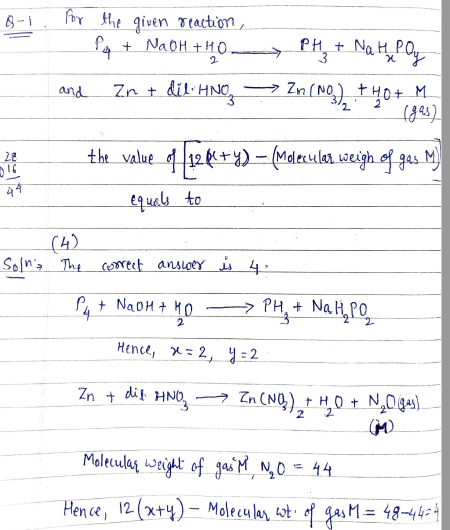 Q-1. For the given reaction,
P₄ + NaOH + H₂O ⟶ PH₃ + NaHₓPOᵧ
and Zn + dil. HNO₃ ⟶ Zn(NO₃)₂ + H₂O + M (gas)
28
16
44
the value of [12(x+y) – (Molecular weigh of gas M)]
equals to
(4)
Soln:→ The correct answer is 4.
P₄ + NaOH + H₂O ⟶ PH₃ + NaH₂PO₂
Hence, x = 2, y = 2
Zn + dil. HNO₃ ⟶ Zn(NO₃)₂ + H₂O + N₂O (gas)
(M)
Molecular weight of gas 'M', N₂O = 44
Hence, 12(x+y) – Molecular wt. of gas M = 48–44=4